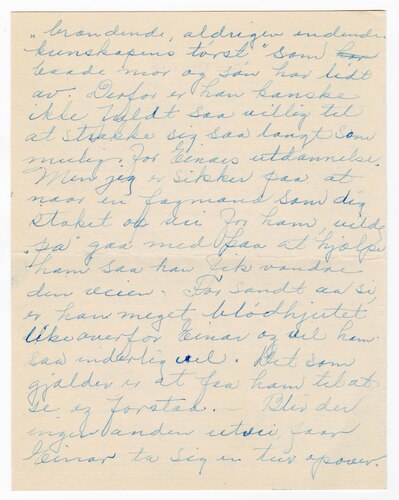 „brændende, aldrigen endende
kunskapens tørst" som
baade mor og søn har lidt
av. Derfor er han kanske
ikke saa villig til
at strække sig saa langt som
mulig. For Einars utdannelse.
Men jeg er sikker paa at
naar en fagmand som dig
staket op vei for ham, vilde
"pa" gaa med paa at hjælpe
ham saa han fik vandre
den veien. For sandt aa si,
er han meget blødhjertet
likeoverfor Einar og vil ham
saa inderlig vel. Det som
gjælder er at faa ham til at
se og forstaa. — Blir der
ingen anden utvei faar
Einar ta sig en tur opover.